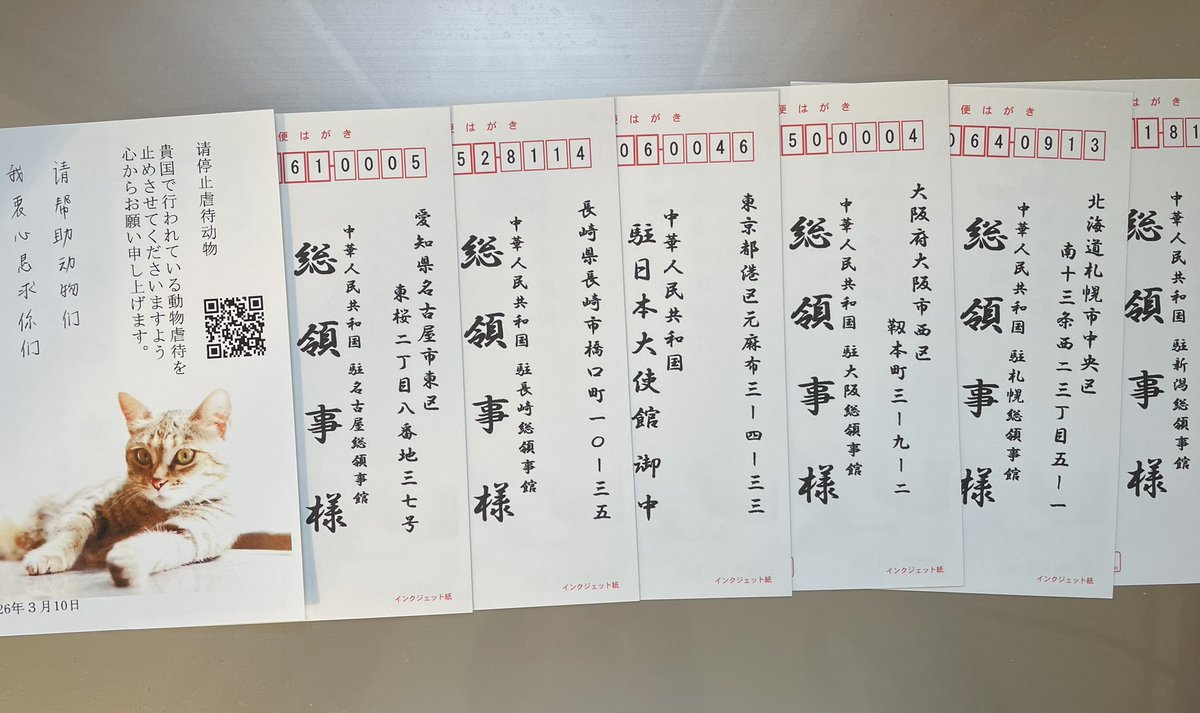 请停止虐待动物
貴国で行われている動物虐待を
止めさせてくださいますよう
心からお願い申し上げます。
请帮助动物们
我衷心恳求你们
26年3月10日
便はがき
61-0005
愛知県名古屋市東区
東桜二丁目八番地三七号
中華人民共和国 駐名古屋総領事館
総領事様
インクジェット紙
便はがき
52-8114
長崎県長崎市橋口町一〇ー三五
中華人民共和国 駐長崎総領事館
総領事様
インクジェット紙
便はがき
06-0046
東京都港区元麻布三ー四ー三三
中華人民共和国
駐日本大使館 御中
インクジェット紙
便はがき
50-0004
大阪府大阪市西区
靱本町三ー九ー二
中華人民共和国 駐大阪総領事館
総領事様
インクジェット紙
便はがき
064-0913
北海道札幌市中央区
南十三条西二三丁目五ー一
中華人民共和国 駐札幌総領事館
総領事様
インクジェット紙
便はがき
181
中華人民共和国 駐新潟総領事館
総領事様